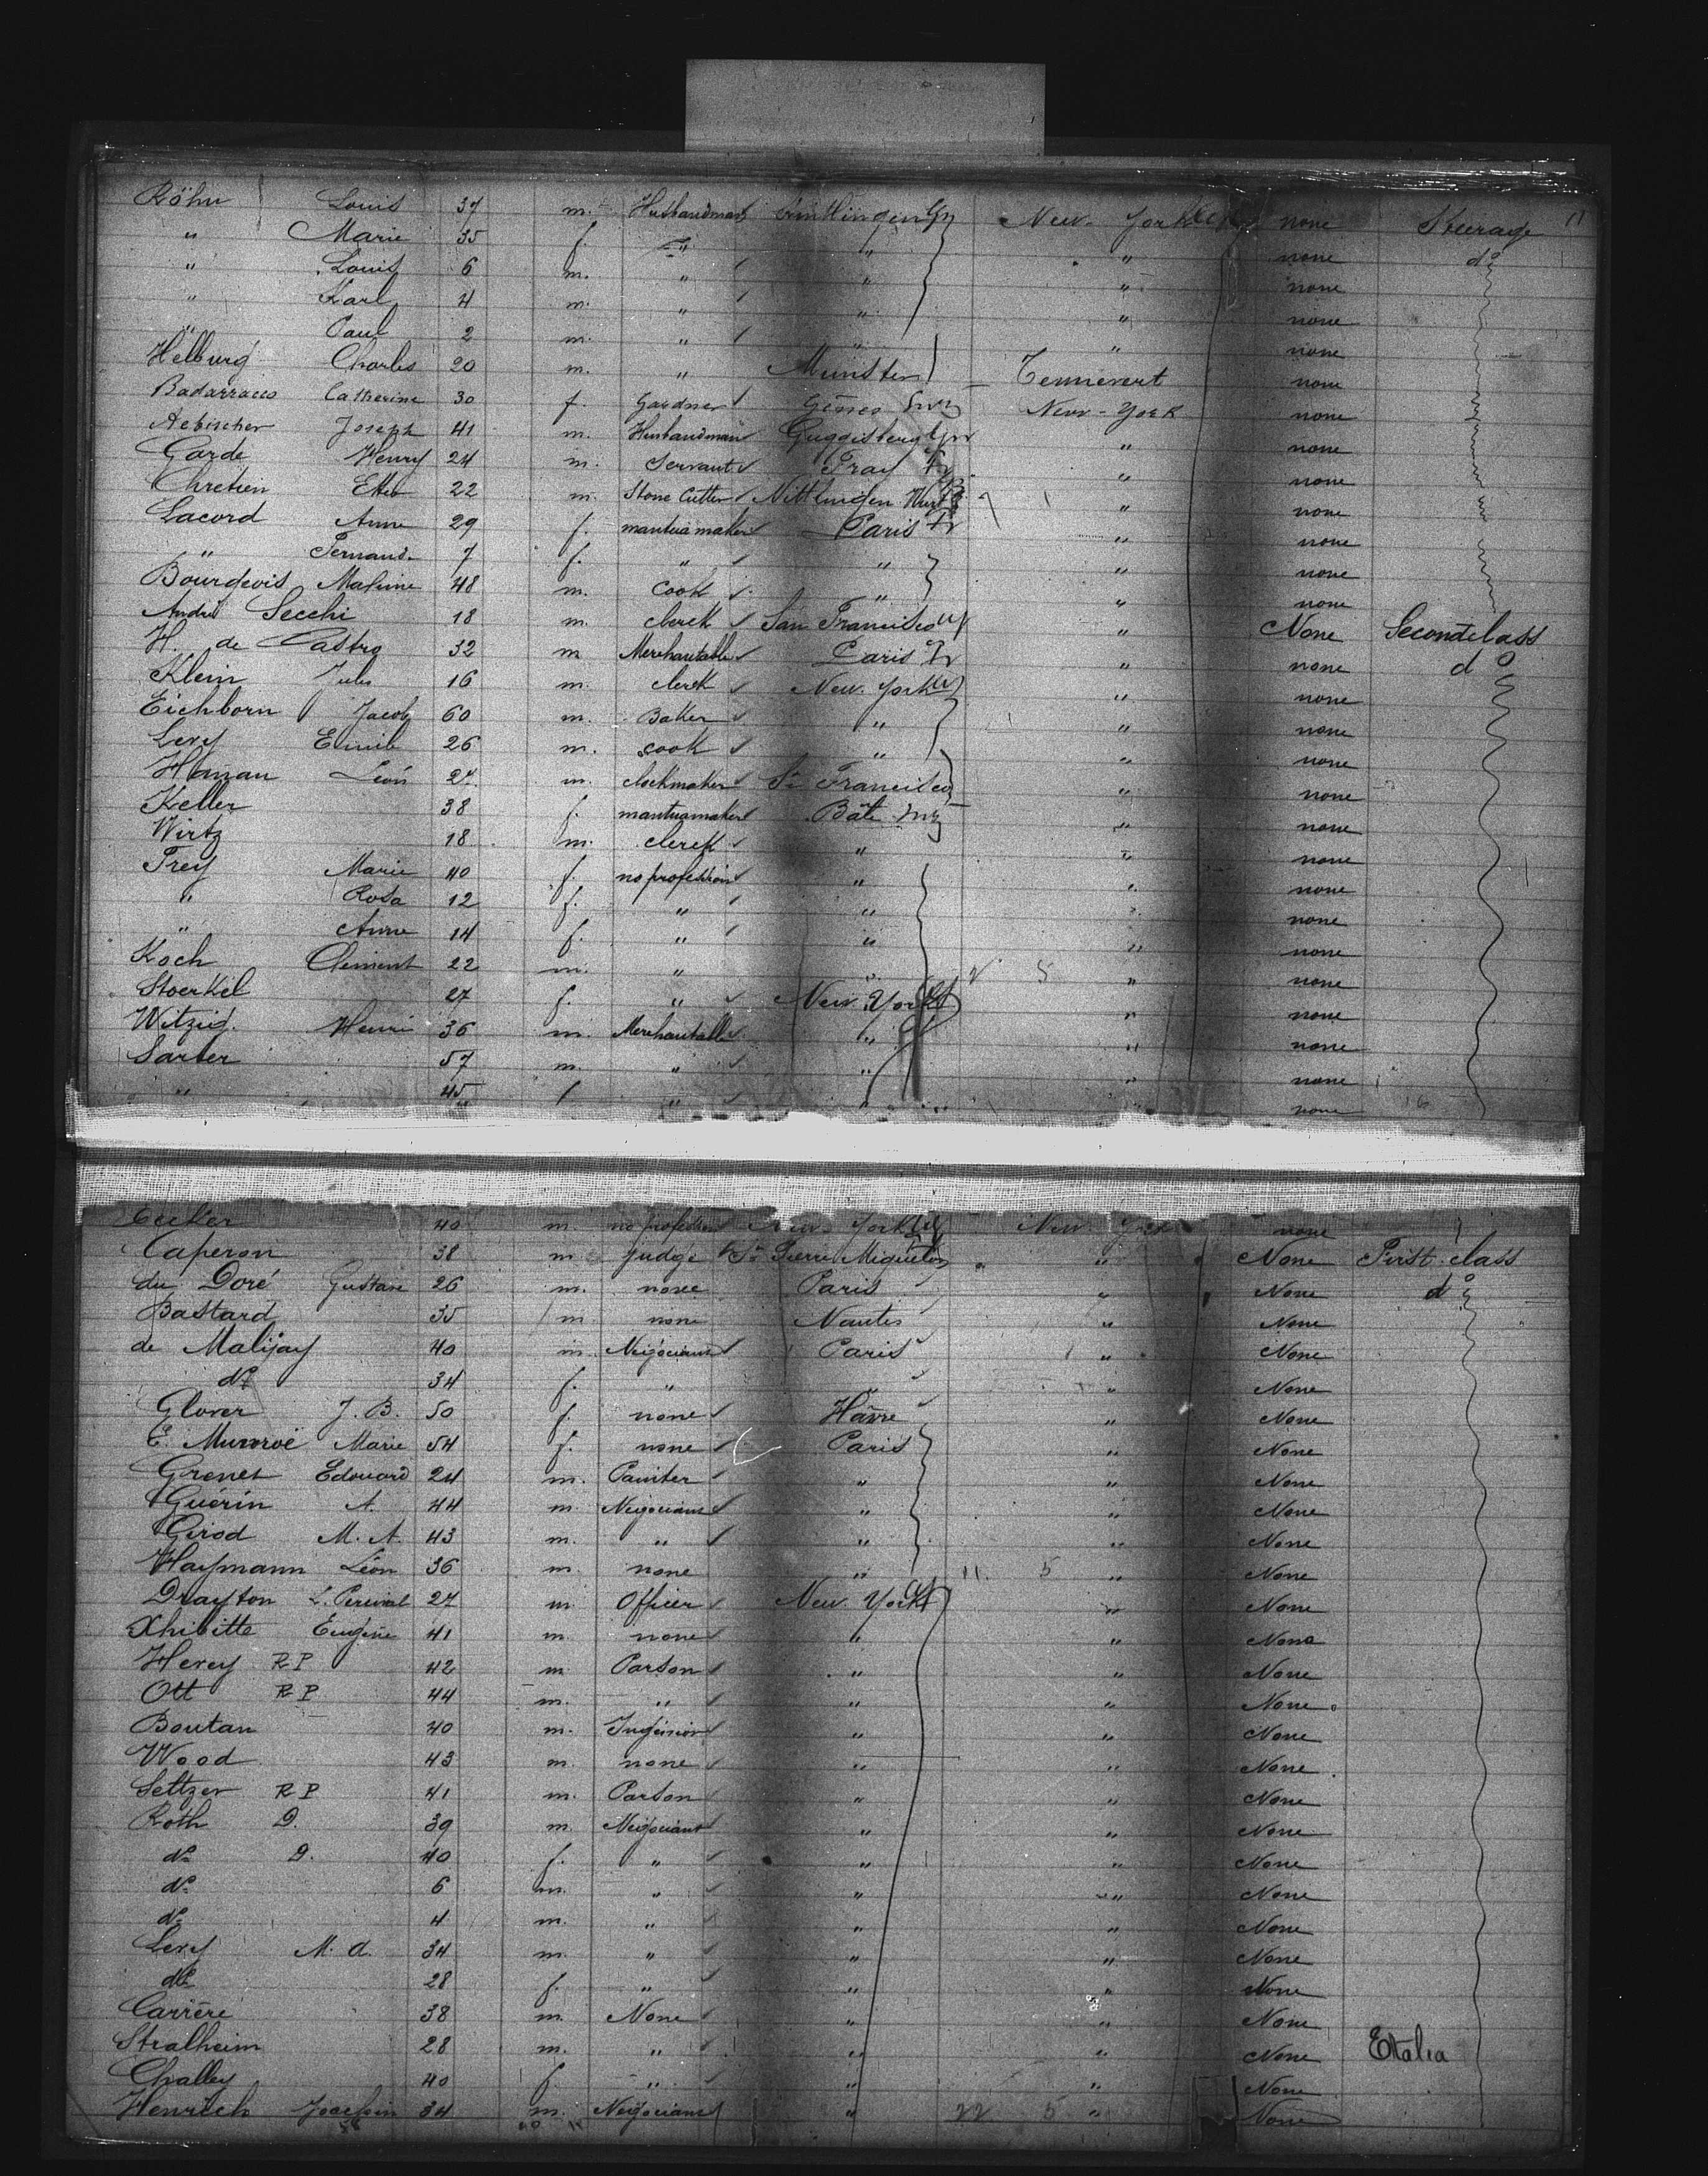 Röhn Louis 37 m. Husbandman New-York none Steerage 11
" Marie 35 f. " " " none do
" Louis 6 m. " " " none
" Karl 4 m. " " " none
" Paul 2 m. " " " none
Helburg Charles 20 m. " Munster none
Badarracco Catherine 30 f. Gardner New-York none
Aebischer Joseph 41 m. Husbandman Guggisberg " none
Garde Henry 24 m. Servant Fray Fr " none
Chretien 22 m. Stone Cutter " none
Lacord Anne 29 f. mantua maker Paris Fr " none
" Fernand 7 f. " " " none
Bourgeois 48 m. Cook " " none
André Secchi 18 m. clerck San Francisco " None Second class
H. de Castro 32 m Merchantable Paris Fr " none do
Klein Jules 16 m. clerck New-York " none
Eichborn Jacob 60 m. Baker " " none
Levy Emile 26 m. cook " " none
Hanau Léon 24 m. clockmaker Sn Francisco " none
Keller 38 f. mantuamaker Bâle " none
Wirtz 18 m. clerck " " none
Frey Marie 40 f. no profession " " none
" Rosa 12 f. " " " none
" Anne 14 f. " " " none
Koch Clement 22 m. " " " none
Stoerkel 27 f. " New York " none
Witzig Henri 36 m. Merchantable " " none
Sarber 57 m. " " " none
" 45 f " " " none
40 m. no profession New-York New-York none
Caperon 38 m judge St Pierre Miquelon " None First class
du Doré Gustave 26 m. none Paris " None do
Bastard 35 m none Nantes " None
de Malijay 40 m. Négociant Paris " None
do 34 f. " " " None
Glover J. B. 50 f. none Hâvre " None
E. Munroé Marie 54 f. none Paris " None
Grenet Edouard 24 m. Painter " " None
Guérin A. 44 m. Négociant " " None
Girod M. A. 43 m. " " " None
Haymann Léon 36 m. none " 11 5 " None
Drayton L. Percival 27 m Officer New York " None
Xhibitte Eugène 41 m. none " " None
Herey R P 42 m Parson " " None
Ott R P 44 m. " " " None
Boutan 40 m. " " None
Wood 43 m. none " " None
Seltzer R P 41 m. Parson " " None
Roth D. 39 m. Négociant " " None
do D. 40 f. " " " None
do 6 m. " " " None
do 4 m. " " " None
Levy M. d. 34 m. " " " None
do 28 f. " " " None
Carrère 38 m. None " " None
Stralheim 28 m. " " " None Etalia
Challey 40 f. " " " None
Henrich 34 m. Négociant " 22 5 " None